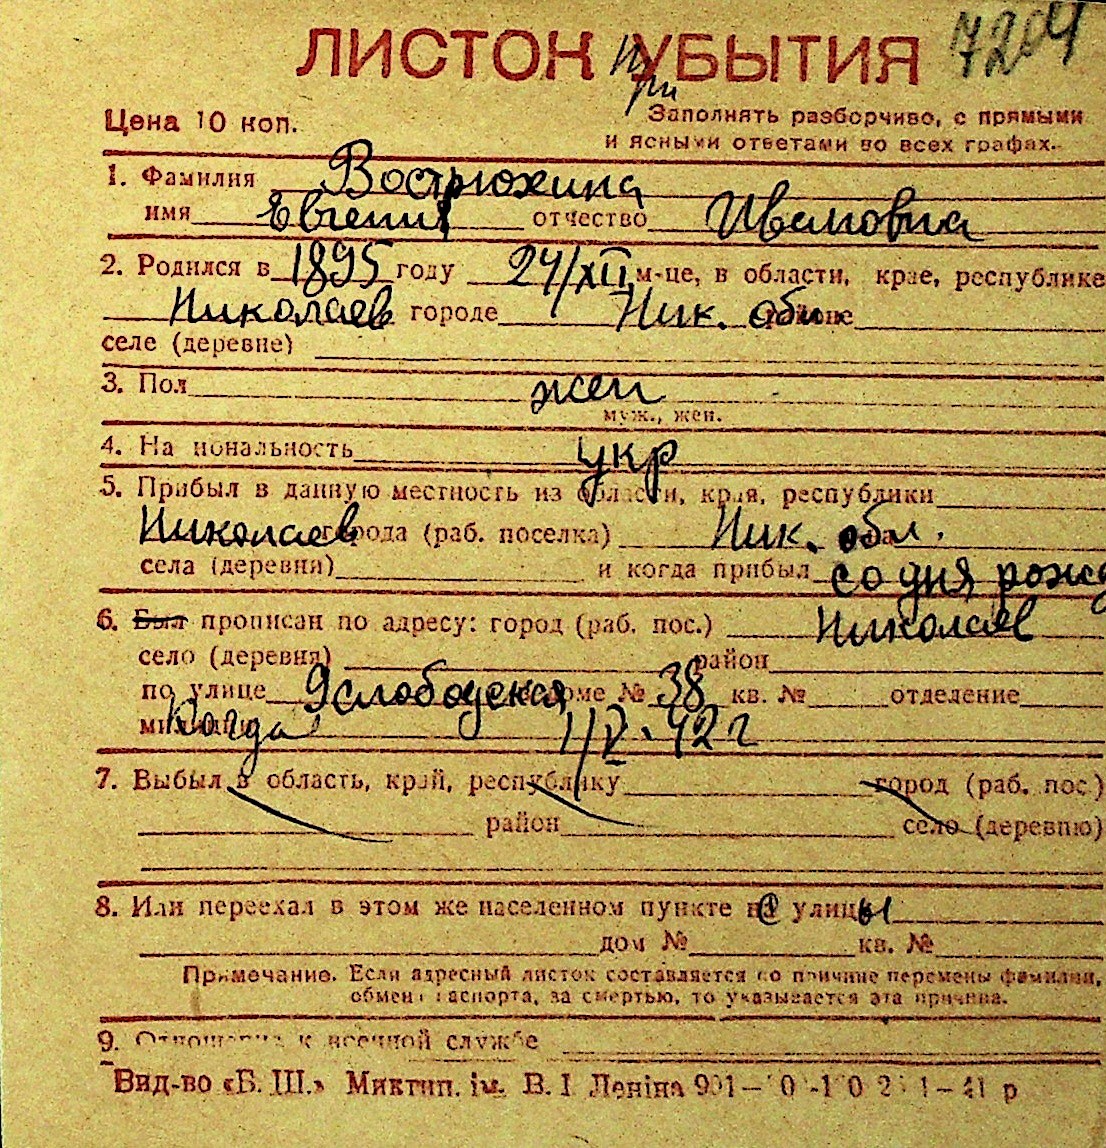 ЛИСТОК УБЫТИЯ 7204
При
Цена 10 коп. Заполнять разборчиво, с прямыми
и ясными ответами во всех графах.
1. Фамилия Вострюхина
имя Евгения отчество Ивановна
2. Родился в 1895 году 24/XII м-це, в области, крае, республике
Николаев городе Ник. обл. районе
селе (деревне)
3. Пол жен
муж., жен.
4. Национальность укр
5. Прибыл в данную местность из области, края, республики
Николаев города (раб. поселка) Ник. обл.
села (деревни) и когда прибыл со дня рожд
6. Был прописан по адресу: город (раб. пос.) Николаев
село (деревня) район
по улице 9 слободская доме № 38 кв. № отделение
милиции Когда 1/V-42 г
7. Выбыл в область, край, республику город (раб. пос.)
район село (деревню)
8. Или переехал в этом же населенном пункте с улицы
дом № кв. №
Примечание. Если адресный листок составляется по причине перемены фамилии,
обмена паспорта, за смертью, то указывается эта причина.
9. Отношение к военной службе
Вид-во «Б. Ш.» Миктип. ім. В. І Леніна